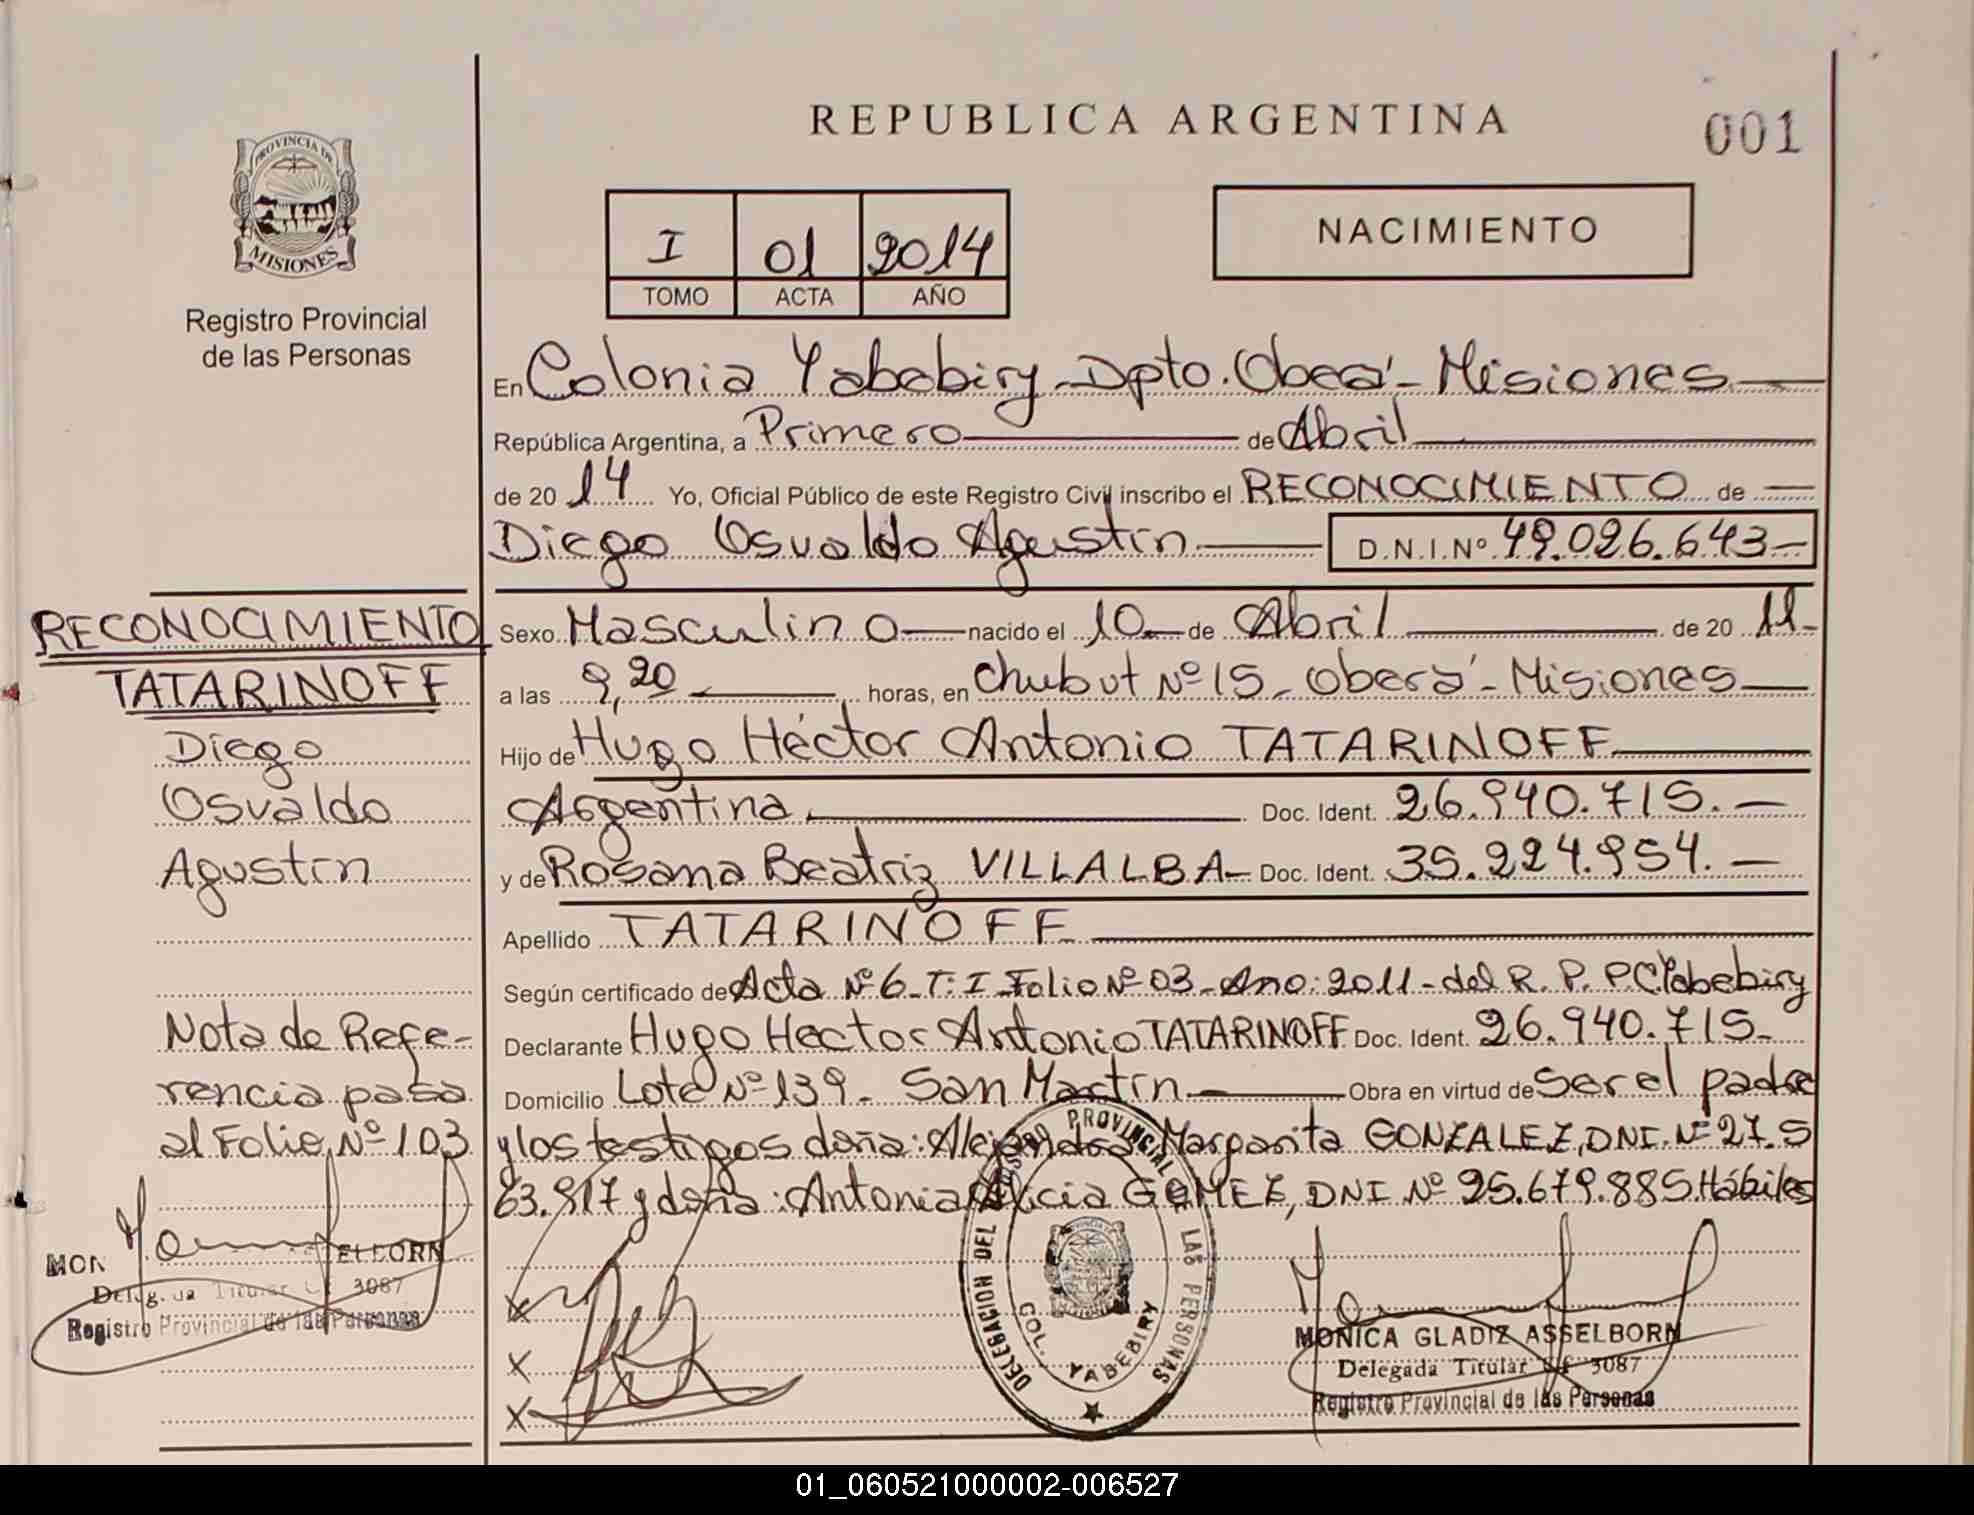 REPUBLICA ARGENTINA
001
PROVINCIA DE
MISIONES
Registro Provincial
de las Personas
I 01 2014
TOMO ACTA AÑO
NACIMIENTO
En Colonia Yabebiry - Dpto. Oberá - Misiones
República Argentina, a Primero de Abril
de 20 14 Yo, Oficial Público de este Registro Civil inscribo el RECONOCIMIENTO de
Diego Osvaldo Agustín D.N.I.Nº 49.026.643
RECONOCIMIENTO
TATARINOFF
Diego
Osvaldo
Agustín
Nota de Refe-
rencia pasa
al Folio Nº 103
Sexo Masculino nacido el 10 de Abril de 20 11
a las 9,20 horas, en Chubut Nº 15 - Oberá - Misiones
Hijo de Hugo Héctor Antonio TATARINOFF
Argentina Doc. Ident. 26.940.715.
y de Rosana Beatriz VILLALBA Doc. Ident. 35.224.954.
Apellido TATARINOFF
Según certificado de Acta Nº 6 - T: I Folio Nº 03 - Año: 2011 - del R. P. P. C. Yabebiry
Declarante Hugo Hector Antonio TATARINOFF Doc. Ident. 26.940.715
Domicilio Lote Nº 139 - San Martín Obra en virtud de ser el padre
y los testigos doña: Alejandra Margarita GONZALEZ, DNI. Nº 27.5
63.917 y doña: Antonia Alicia GOMEZ, DNI Nº 25.679.885 Hábiles
X
X
X
DELEGACION DEL REGISTRO PROVINCIAL DE LAS PERSONAS
COL. YABEBIRY
MON ELBORN
Deleg. da Titular 3087
Registro Provincial de las Personas
MONICA GLADIZ ASSELBORN
Delegada Titular 3087
Registro Provincial de las Personas
01_060521000002-006527